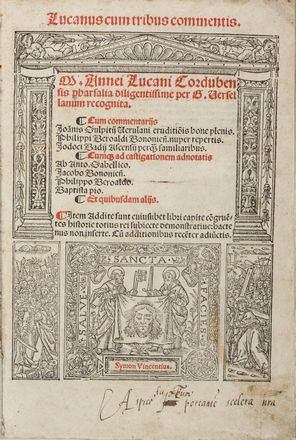 Lucanus cum tribus commentis.
M. Annei Lucani Corduben
sis pharsalia diligentissime per G. Versel
lanum recognita.
Cum commentarijs
Joānis Sulpitij Verulani eruditiōis bone plenis.
Philippi Beroaldi Bononieñ. nuper repertis.
Jodoci Badij Ascensij perq̄3 familiaribus.
Cumq3 ad castigationem adnotatis
Ab Anto. Sabellico.
Jacobo Bononieñ.
Philippo Beroaldo.
Baptista pio.
Et quibusdam alijs.
Item Addite sunt cuiuslibet libri capite cōgruē
tes historie totius rei subiecte demonstratiue: hacte
nus non inserte. Cū additionibus recēter adiūctis.
SALVE SANCTA FACIES
Symon Vincentius.
portante scelera